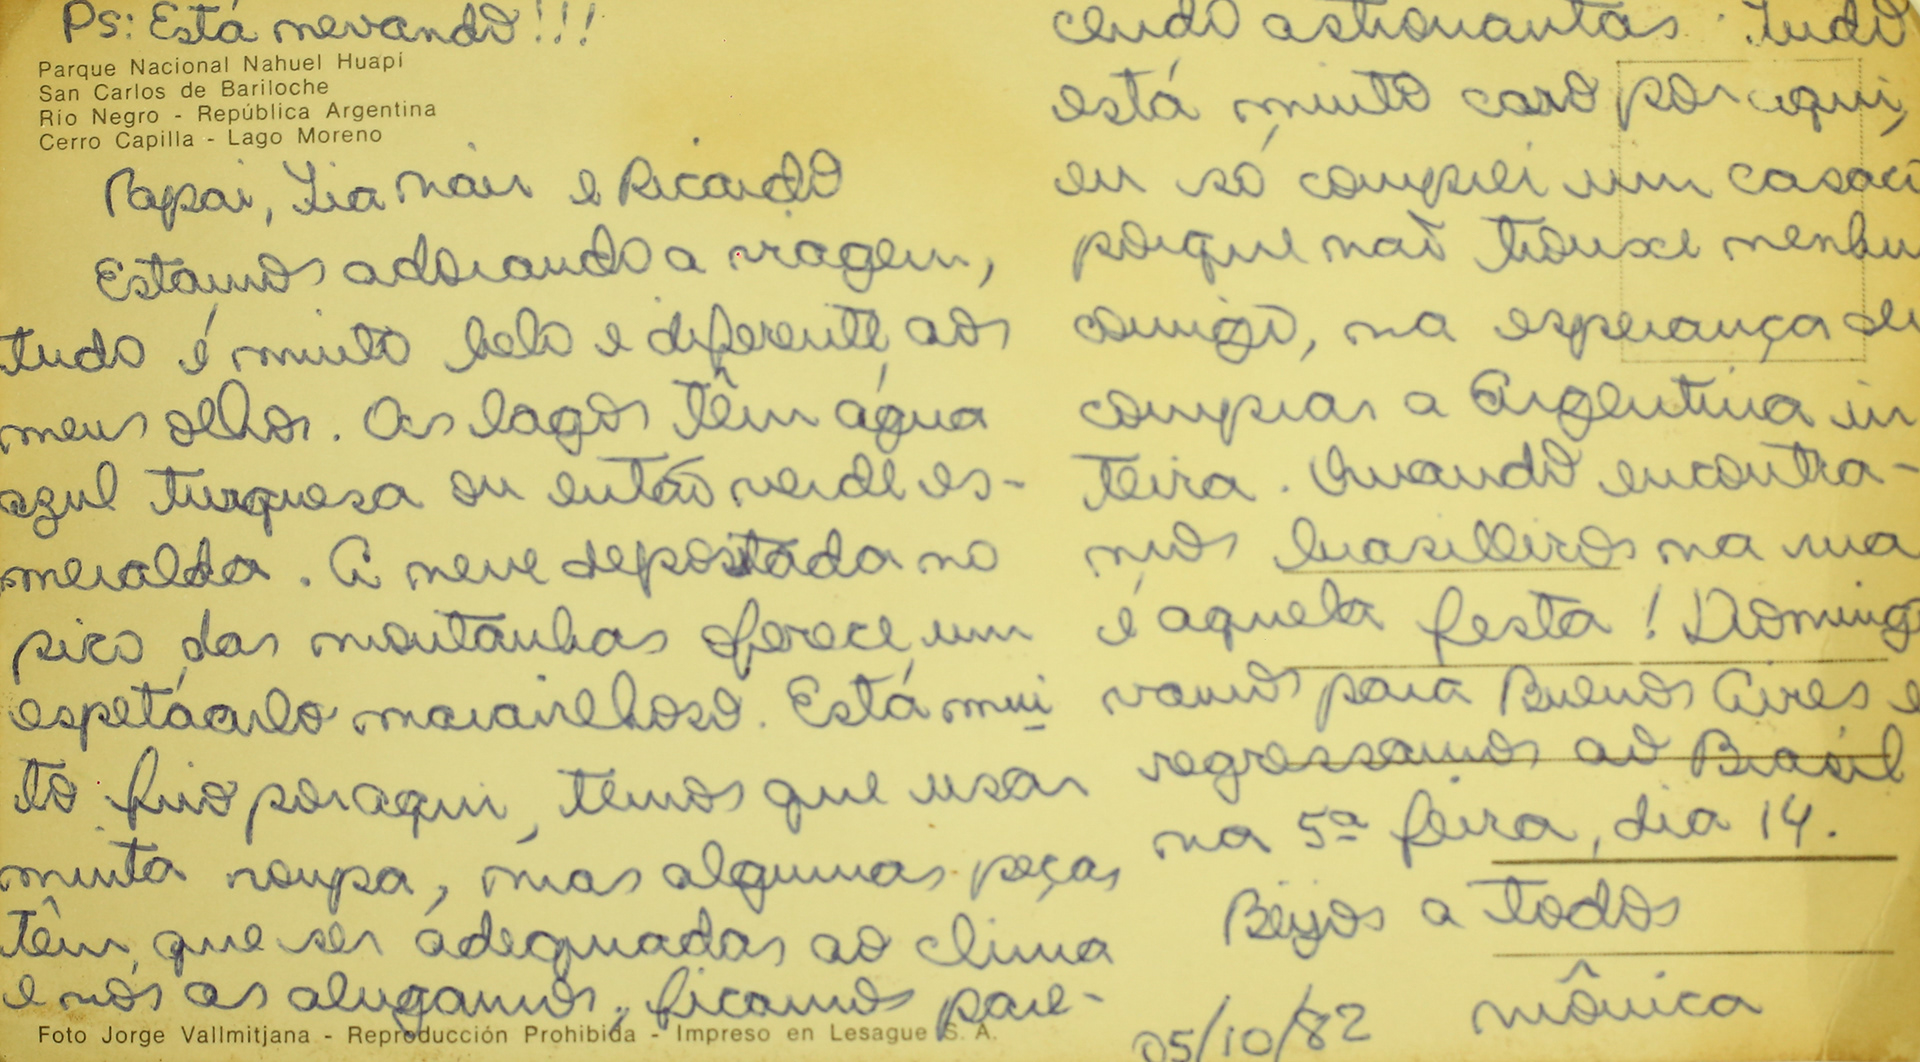 Ps: Está nevando!!!
Parque Nacional Nahuel Huapi
San Carlos de Bariloche
Río Negro - República Argentina
Cerro Capilla - Lago Moreno
Papai, Tia Nair e Ricardo
Estamos adorando a viagem,
tudo é muito belo e diferente aos
meus olhos. Os lagos têm água
azul turquesa ou então verde es-
meralda. A neve depositada no
pico das montanhas oferece um
espetáculo maravilhoso. Está mui
to frio por aqui, temos que usar
muita roupa, mas algumas peças
têm que ser adequadas ao clima
e nós as alugamos, ficamos pare-
Foto Jorge Vallmitjana - Reproducción Prohibida - Impreso en Lesague S. A.
cendo astronautas. Tudo
está muito caro por aqui,
eu só comprei um casaco
porque não trouxe nenhum
comigo, na esperança de
comprar a Argentina in
teira. Quando encontra-
mos brasileiros na rua
é aquela festa! Domingo
vamos para Buenos Aires e
regressamos ao Brasil
na 5ª feira, dia 14.
Beijos a todos
Mônica
05/10/82